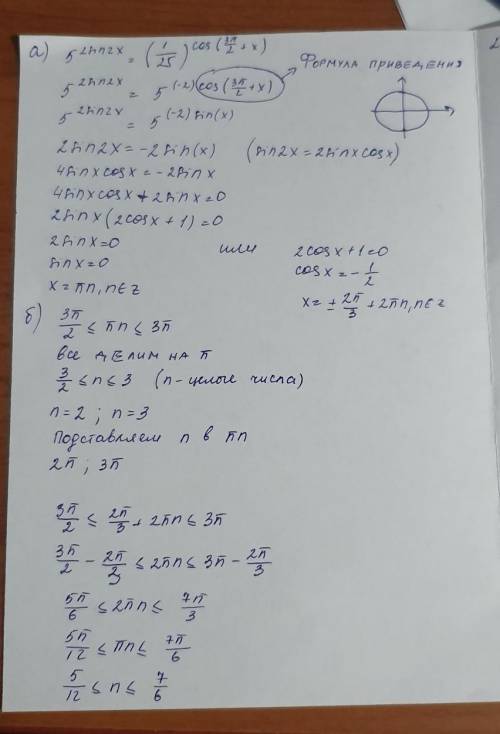 а) 5^(2sin2x) = (1/25)^(cos(3π/2+x))
5^(2sin2x) = 5^((-2)cos(3π/2+x)) Формула приведения
5^(2sin2x) = 5^((-2)sin(x))
2sin2x = -2sin(x) (sin2x=2sinxcosx)
4sinxcosx = -2sinx
4sinxcosx + 2sinx = 0
2sinx(2cosx+1) = 0
2sinx=0 или 2cosx+1=0
sinx=0 cosx=-1/2
x=πn, n∈z x=±2π/3+2πn, n∈z
б) 3π/2 ≤ πn ≤ 3π
все делим на π
3/2 ≤ n ≤ 3 (n-целые числа)
n=2 ; n=3
Подставляем n в πn
2π ; 3π
3π/2 ≤ 2π/3 + 2πn ≤ 3π
3π/2 - 2π/3 ≤ 2πn ≤ 3π - 2π/3
5π/6 ≤ 2πn ≤ 7π/3
5π/12 ≤ πn ≤ 7π/6
5/12 ≤ n ≤ 7/6